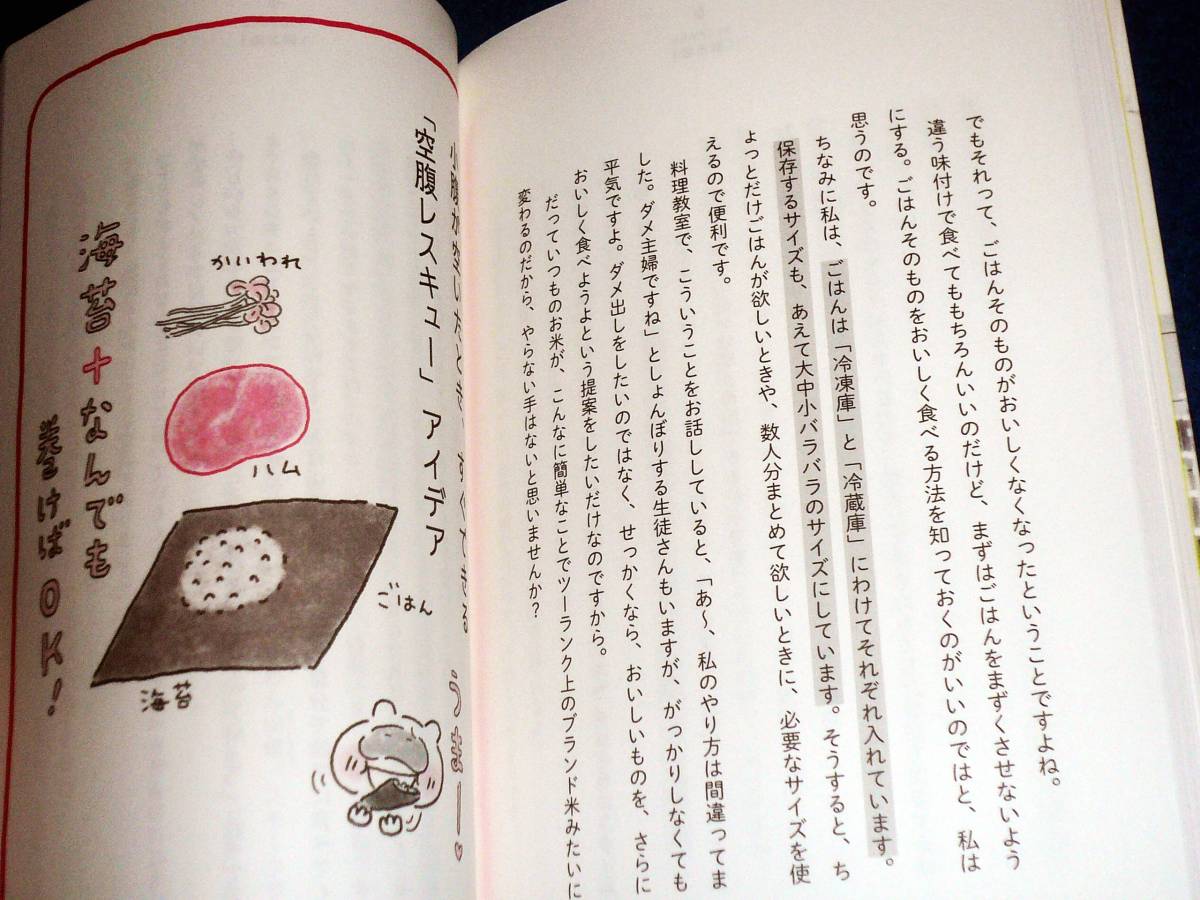 でもそれって、ごはんそのものがおいしくなくなったということですよね。
違う味付けで食べてももちろんいいのだけど、まずはごはんをまずくさせないよう
にする。ごはんそのものをおいしく食べる方法を知っておくのがいいのでは、と、私は
思うのです。
ちなみに私は、ごはんは「冷凍庫」と「冷蔵庫」にわけてそれぞれ入れています。
保存するサイズも、あえて大中小バラバラのサイズにしています。そうすると、ち
ょっとだけごはんが欲しいときや、数人分まとめて欲しいときに、必要なサイズを使
えるので便利です。
料理教室で、こういうことをお話ししていると、「あ〜、私のやり方は間違ってま
した。ダメ主婦ですね」としょんぼりする生徒さんもいますが、がっかりしなくても
平気ですよ。ダメ出しをしたいのではなく、せっかくなら、おいしいものを、さらに
おいしく食べようよという提案をしたいだけなのですから。
だっていつものお米が、こんなに簡単なことでツーランク上のブランド米みたいに
変わるのだから、やらない手はないと思いませんか?
小腹が空いたとき、すぐできる
「空腹レスキュー」アイデア
かいわれ
ハム
ごはん
海苔
海苔+なんでも
巻けばOK!